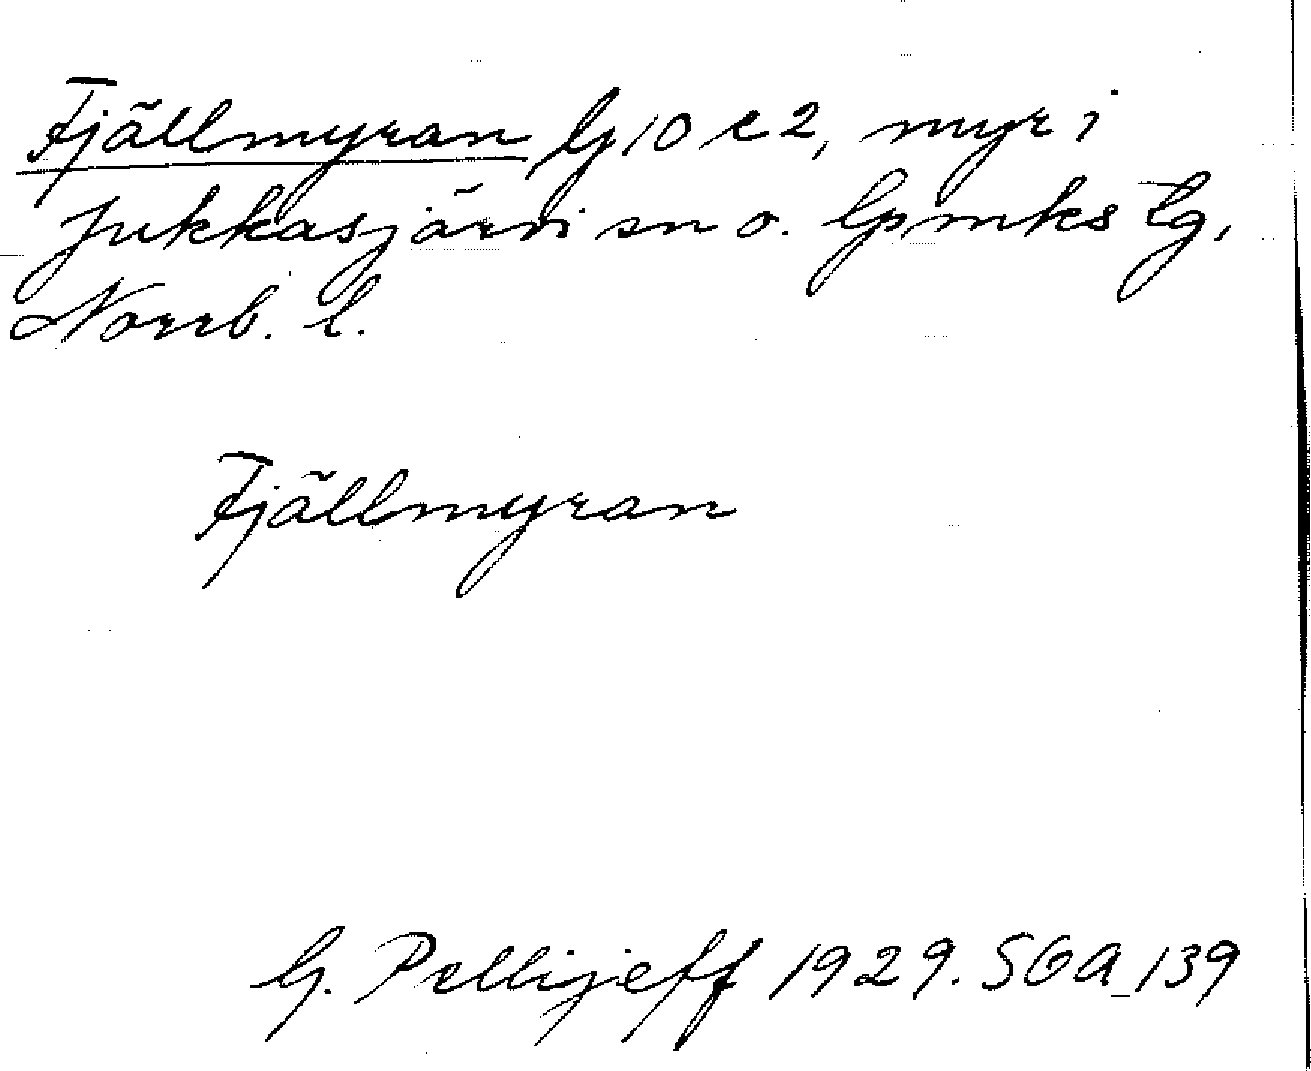 Fjällmyran G 10 c 2, myr i
Jukkasjärvi sn o. lpmks tg,
Norrb. l.
Fjällmyran
G. Pellijeff 1929. SOA 139